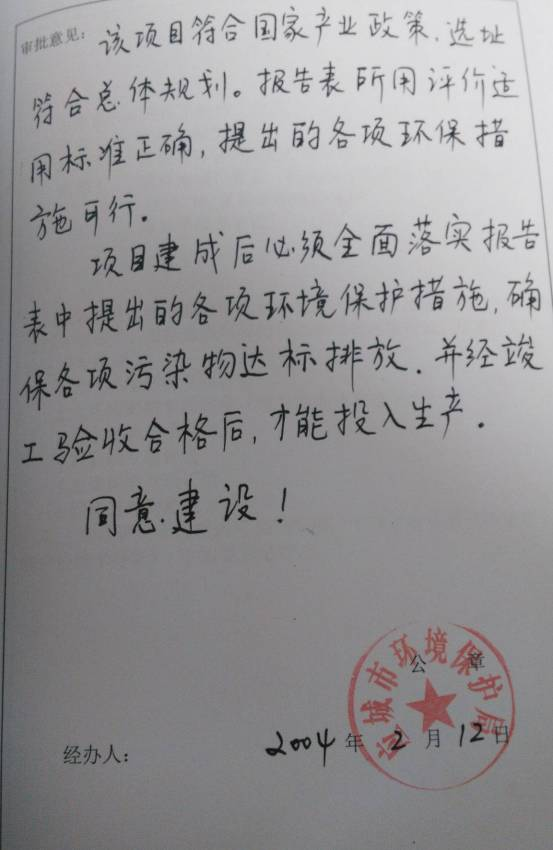 审批意见：该项目符合国家产业政策，选址
符合总体规划。报告表所用评价适
用标准正确，提出的各项环保措
施可行。
项目建成后必须全面落实报告
表中提出的各项环境保护措施，确
保各项污染物达标排放．并经竣
工验收合格后，才能投入生产。
同意建设！
城市环境保护局
公章
经办人：
2004年2月12日